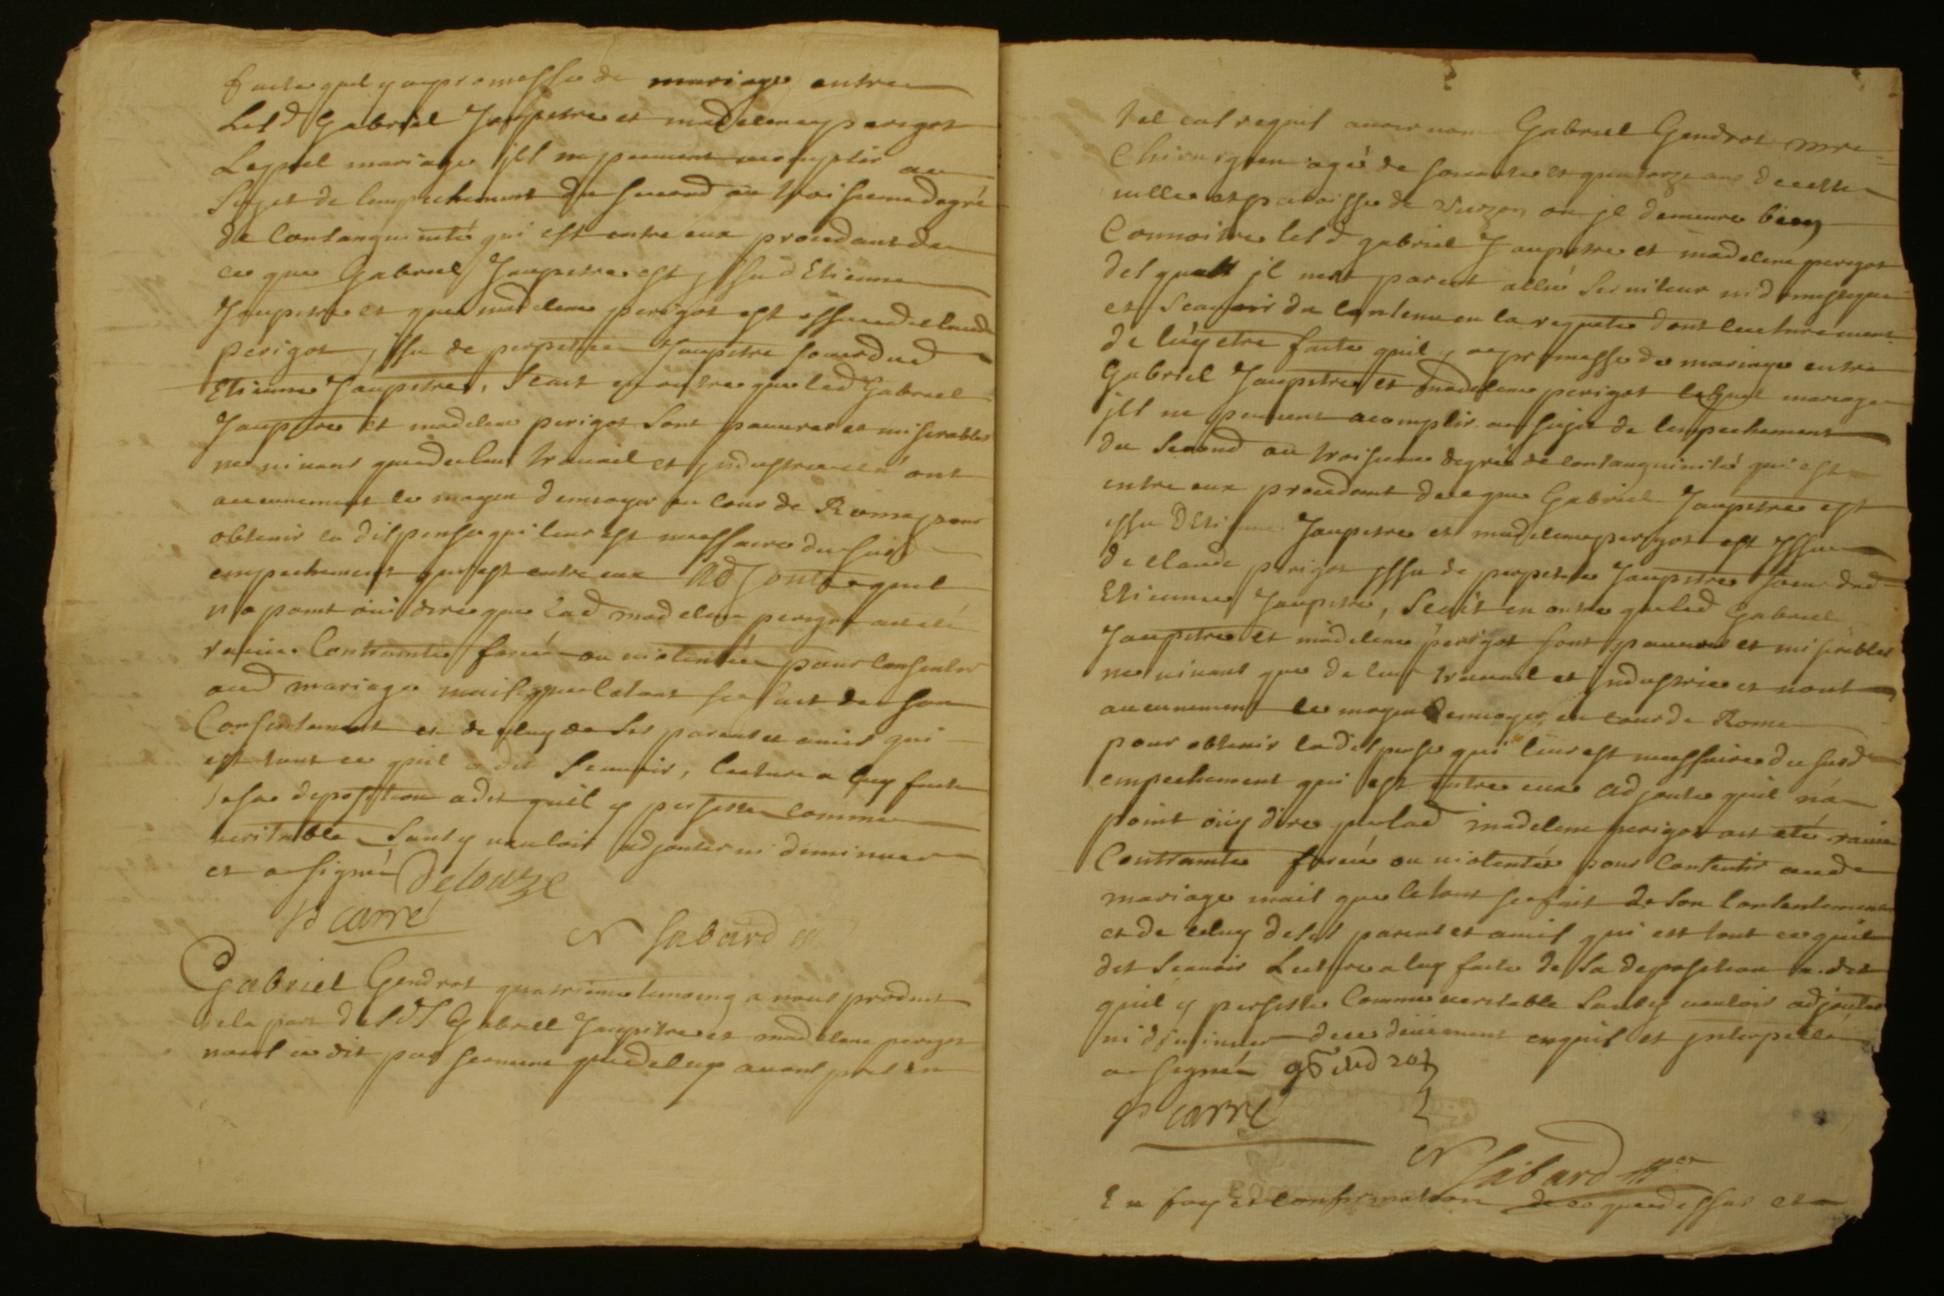 faite quil y a promesse de mariage entre
Lesd Gabriel Jaupitre et madelenne perigot
Lequel mariage jls ne peuvent acomplir au
Sujet de lempechement du second au troisieme degré
de Consanguinité qui est entre eux procedant de
ce que Gabriel Jaupitre est yssu d Etienne
Jaupitre et que madelene perigot est yssue de claude
perigot, yssu de perpetue Jaupitre soeur dud
Etienne Jaupitre, Scait en outre que led Gabriel
Jaupitre et madelene perigot sont pauvres et miserables
ne vivant que de leur travail et jndustrie et n'ont
aucunement le moyen d'envoyer en Cour de Rome pour
obtenir la dispense qui leur est nessaire du susd
empechement qui est entre eux Adjoute quil
na point oui dire que lad madelene perigot ait été
ravie Contrainte forcée ou violentée pour Consentir
aud mariage mais que letout se fait de son
Consentement et de celuy de ses parents et amis qui
est tout ce quil a dit Scavoir, lecture a luy faite
de sa deposition a dit quil y persiste comme
veritable Sans y vouloir adjouter ni diminuer
et a signé Delouzze
P carré
N Sabard
Gabriel Gendrot quatrieme temoing a nous produit
de la part desds Gabriel Jaupitre et madelene perigot
nous a dit par serment que de luy avons pris en
tel cas requis avoir nom Gabriel Gendrot mre
Chirurgien agé de soixante et quatorze ans de cette
ville et paroisse de Vierzon ou jl demeure bien
Connoitre lesd gabriel Jaupitre et madelene perigot
desquels jl nest parent allié Serviteur ni domestique
et Scavoir du contenu en la requete dont lecture vient
de luy etre faite quil y a promesse de mariage entre
Gabriel Jaupitre et madelene perigot lequel mariage
jls ne peuvent acomplir au sujet de lempechement
du Second au troisieme degré de consanguinité qui est
entre eux procedant de ce que Gabriel Jaupitre est
yssu DEtienne Jaupitre et madelene perigot est yssue
de claude perigot yssu de perpetue Jaupitre soeur dud
Etienne Jaupitre, Scait en outre que led Gabriel
Jaupitre et madelene perigot sont pauvres et miserables
ne vivant que de leur travail et jndustrie et nont
aucunement le moyen denvoyer en cour de Rome
pour obtenir la dispense qui leur est nessaire du susd
empechement qui est entre eux Adjoute quil n'a
point oüy dire que lad madelene perigot ait eté ravie
Contrainte forcée ou violentée pour Consentir aud
mariage mais que le tout se fait de son Consentement
et de celuy de ses parents et amis qui est tout ce quil
dit Scavoir Lecture a luy faite de sa deposition a dit
quil y persiste Comme veritable Sans y vouloir adjouter
ni diminuer de ce deüement enquis et jnterpellé
a signé
P carré
N Sabard
En foy et confirmation de ce que dessus et